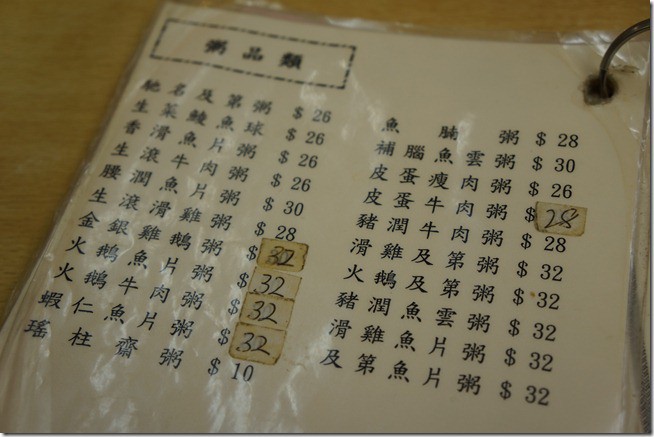 粥品類
馳名及第粥 $26
生菜鯪魚球 $26
香滑魚片粥 $26
生滾牛肉粥 $26
腰潤魚片粥 $30
生滾滑雞粥 $28
金銀雞鵝粥 $32
火鵝魚片粥 $32
火鵝牛肉粥 $32
蝦仁魚片粥 $32
瑤柱齋粥 $10
魚腩粥 $28
補腦魚雲粥 $30
皮蛋瘦肉粥 $26
皮蛋牛肉粥 $28
豬潤牛肉粥 $28
滑雞及第粥 $32
火鵝及第粥 $32
豬潤魚雲粥 $32
滑雞魚片粥 $32
及第魚片粥 $32